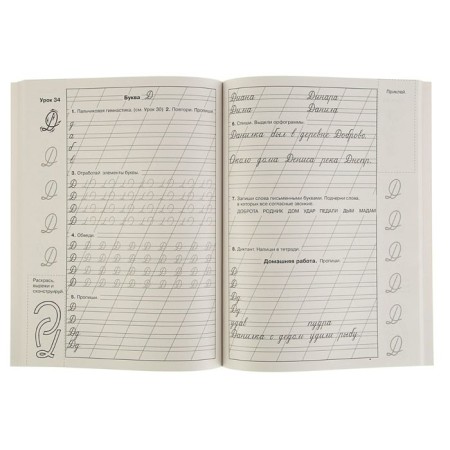 Урок 34
Буква Д
1. Пальчиковая гимнастика (см. Урок 30). 2. Повтори. Пропиши.
д
а
б
в
3. Отработай элементы буквы.
Д
Д
Д
4. Обведи.
Д Д Д Д Д Д Д Д Д Д
Д Д Д Д Д Д Д Д Д Д
Д Д Д Д Д Д Д Д Д Д
Раскрась, вырежи и
сконструируй.
5. Пропиши.
Д
Д
Дд
Дд
Диана Динара
Дима Данила
6. Спиши. Выдели орфограммы.
Данилка был в деревне Доброво.
Около дома Дениса река Днепр.
7. Запиши слова письменными буквами. Подчеркни слова,
в которых все согласные звонкие.
ДОБРОТА РОДНИК ДОМ УДАР ПЕДАЛИ ДЫМ МАДАМ
8. Диктант. Напиши в тетради.
Домашняя работа. Пропиши.
Д
Д
Дд
Дд
удав пудра
Данилка с дедом удили рыбу.